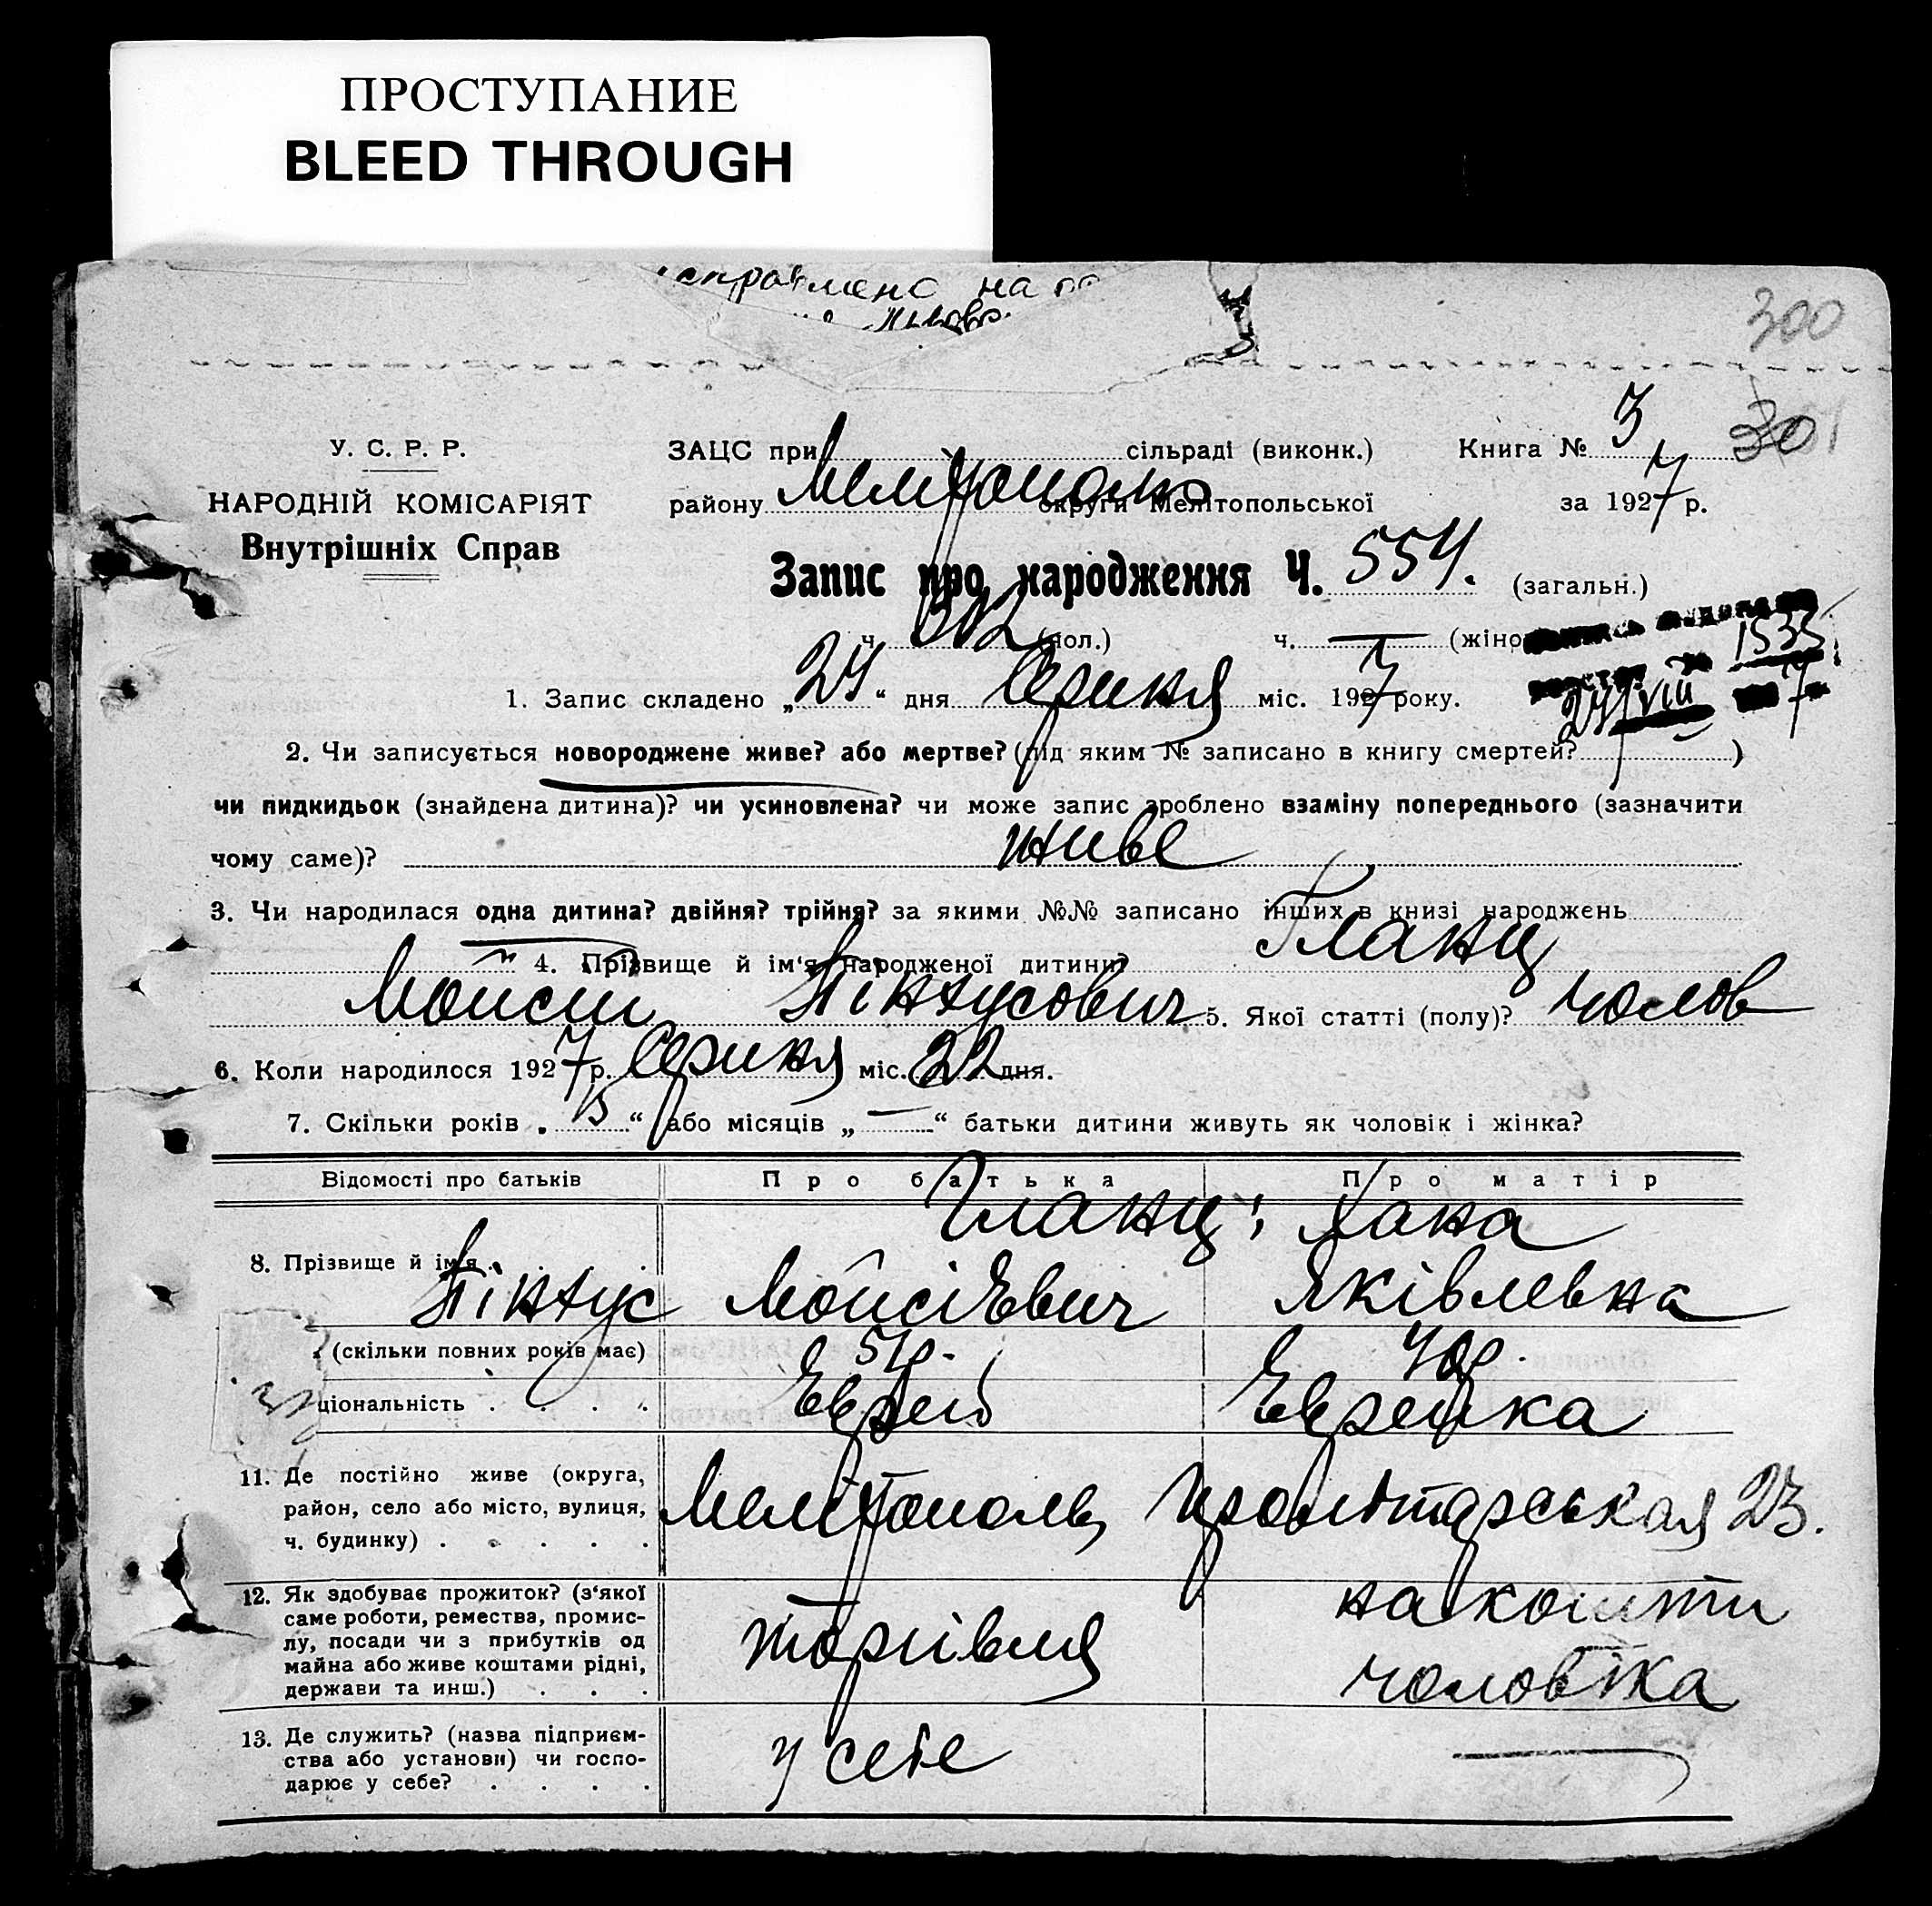 ПРОСТУПАНИЕ
BLEED THROUGH
на
300
У. С. Р. Р.
НАРОДНІЙ КОМІСАРІЯТ
Внутрішніх Справ
ЗАЦС при сільраді (виконк.) Книга № 3 301
району Мелітополь округи Мелітопольської за 1927 р.
Запис про народження Ч. 554. (загальн.)
ч. 302 (пол.) ч. — (жіно
1533
1. Запис складено „24“ дня Серпня міс. 1927 року.
24/VIII 7
2. Чи записується новороджене живе? або мертве? (під яким № записано в книгу смертей? )
чи пидкидьок (знайдена дитина)? чи усиновлена? чи може запис зроблено взаміну попереднього (зазначити
чому саме)? живе
3. Чи народилася одна дитина? двійня? трійня? за якими №№ записано інших в книзі народжень
4. Прізвище й ім'я народженої дитини? Гланц
Мойсей Пінхусович 5. Якої статті (полу)? чолов
6. Коли народилося 1927 р. Серпня міс. 22 дня.
7. Скільки років „ “ або місяців „—“ батьки дитини живуть як чоловік і жінка?
Відомості про батьків Про батька Про матір
Гланц: Хана
8. Прізвище й ім'я Пінхус Мойсієвич Яківлевна
(скільки повних років має) 51р. 40р.
ціональність . . . . Еврей Еврейка
11. Де постійно живе (округа,
район, село або місто, вулиця,
ч. будинку) . . . . . Мелітополь, Пролетарськая 23.
12. Як здобуває прожиток? (з'якої
саме роботи, ремества, промис-
лу, посади чи з прибутків од
майна або живе коштами рідні,
держави та инш.) . . . торгівля на кошти
чоловіка
13. Де служить? (назва підприєм-
ства або установи) чи госпо-
дарює у себе? . . . . у себе —